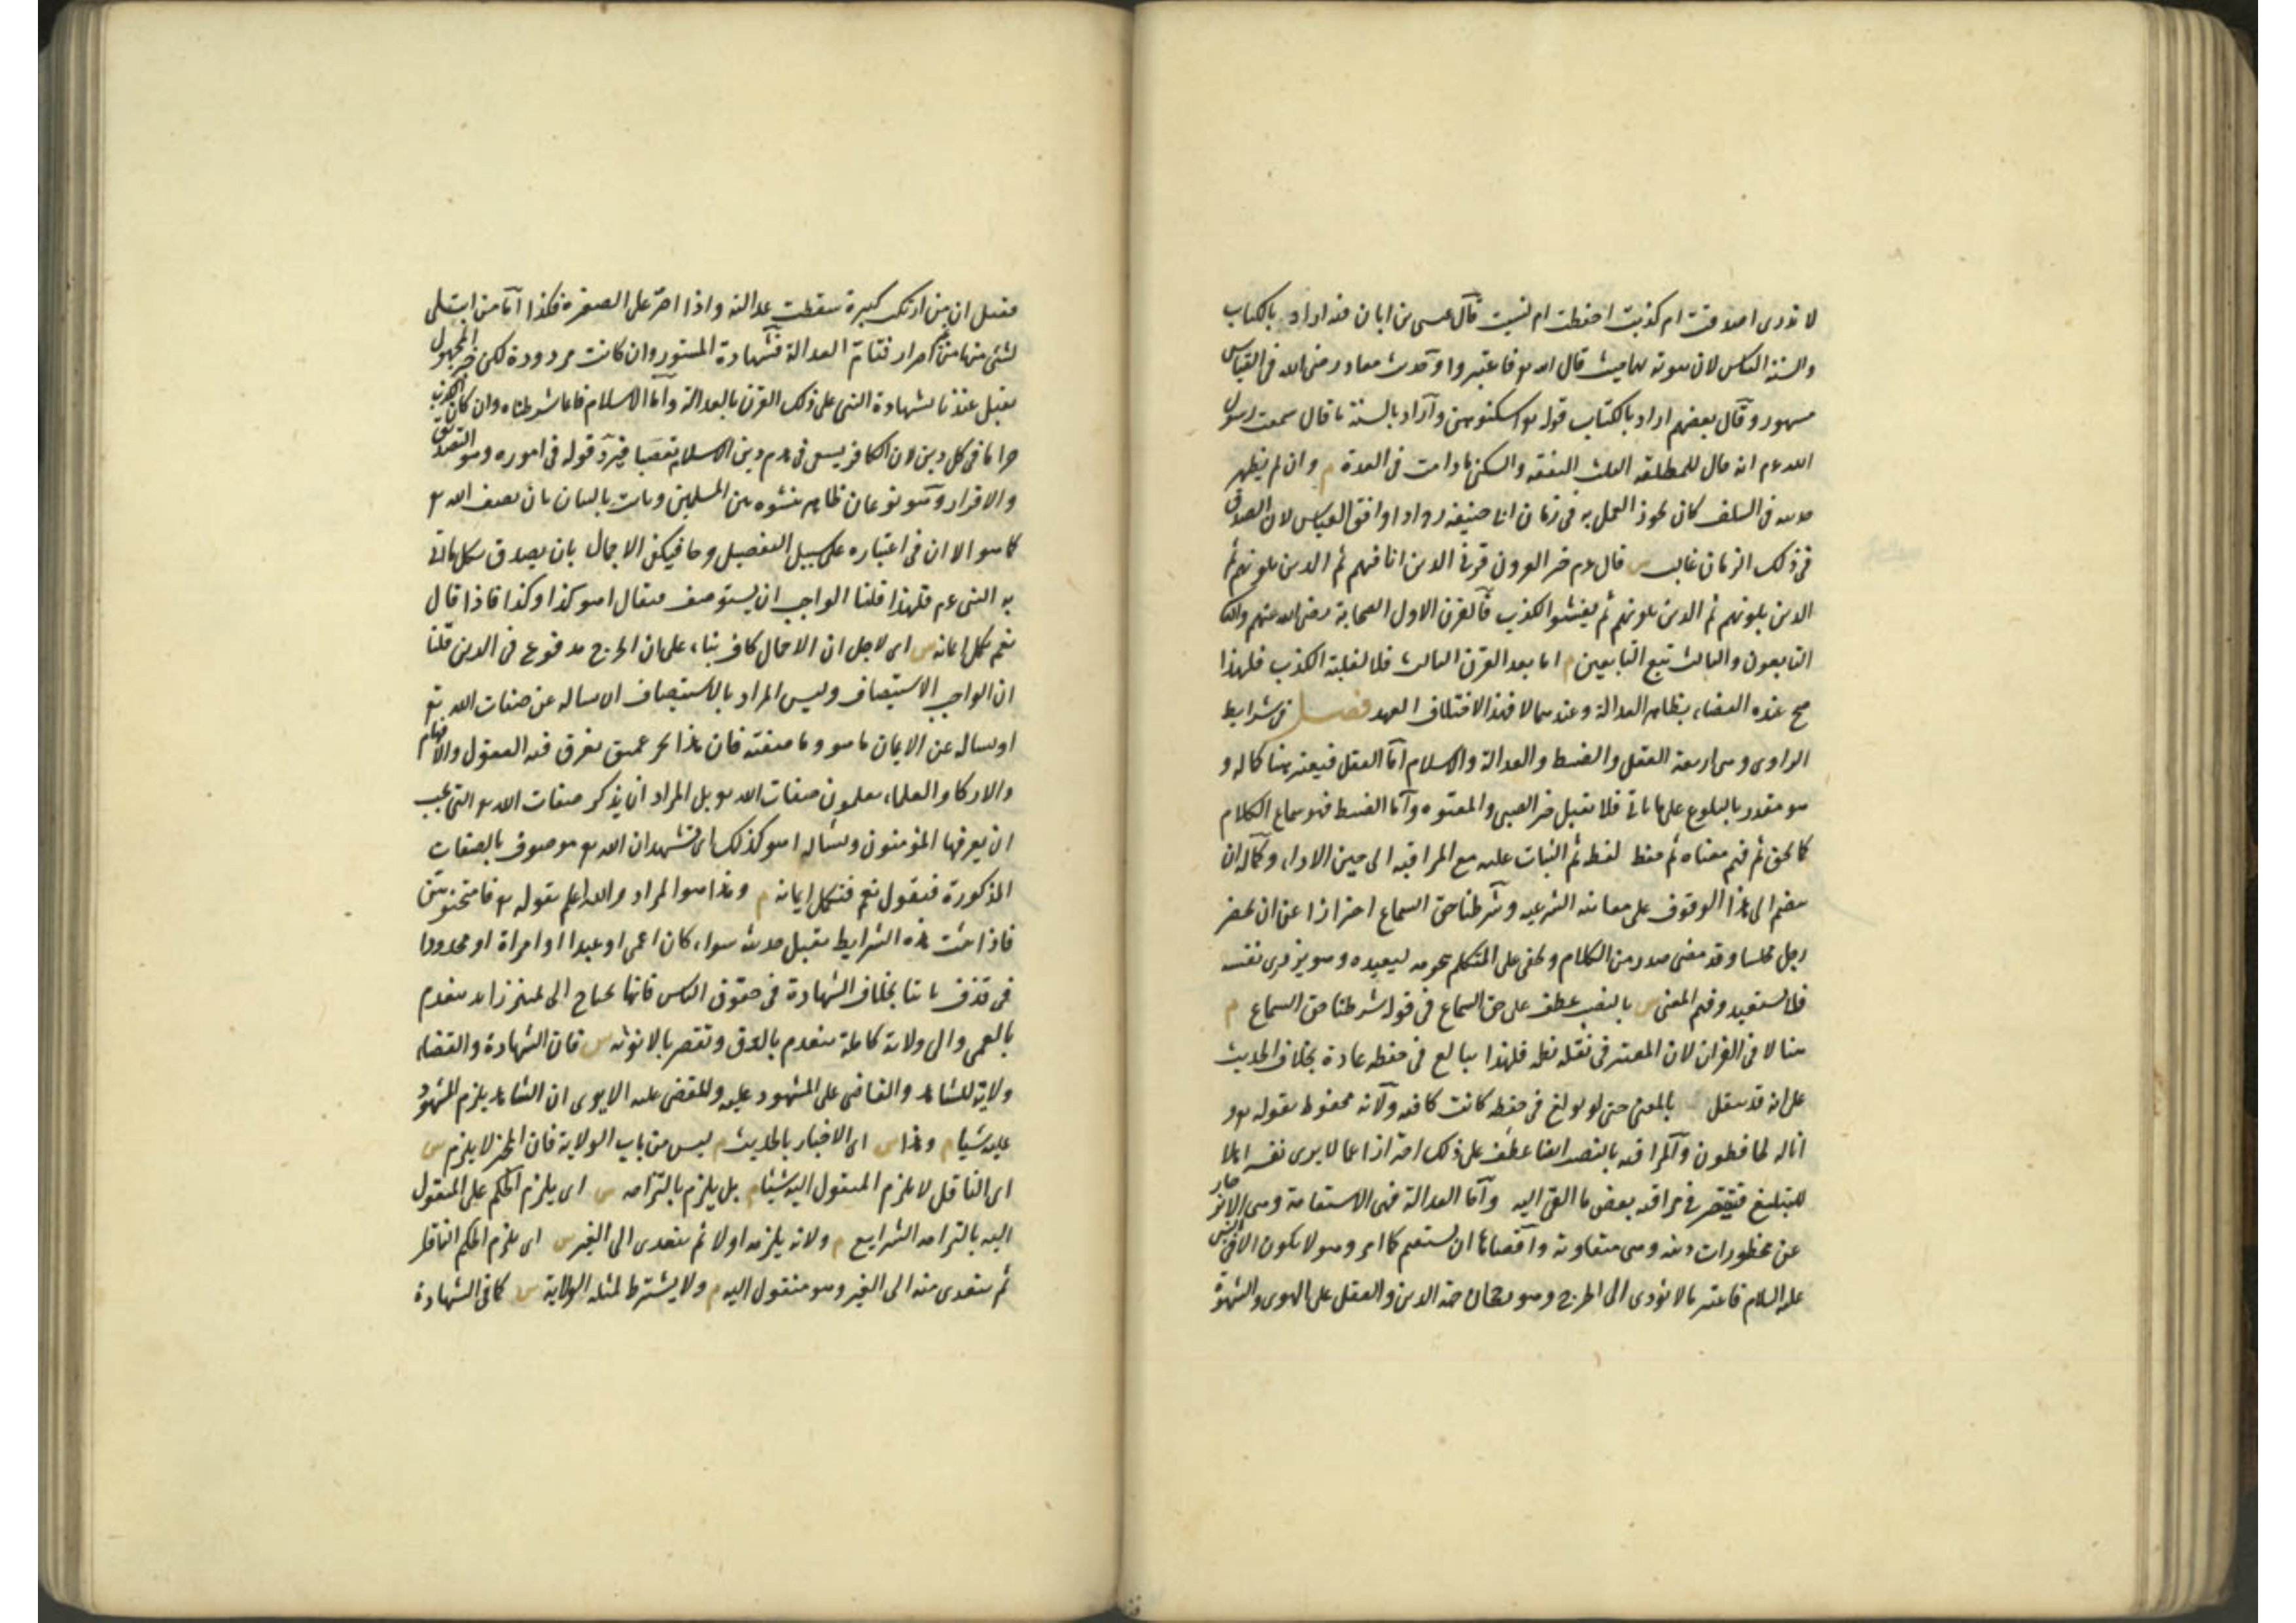 لا ندرى اصدقت ام كذبت احفظت ام نسيت قال عيسى بن ابان فيه اراد بالكتاب
والسنة القياس لان ثبوته بهما حيث قال الله تع فاعتبروا وحديث معاذ رضى الله فى القياس
مشهور وقال بعضهم اراد بالكتاب قوله تع اسكنوهن وآراد بالسنة ما قال سمعت رسول
الله عم انه قال للمطلقة الثلث النفقة والسكنى ما دامت فى العدة م وان لم يظهر
حديثه فى السلف كان يجوز العمل به فى زمان ابى حنيفة رح اذا وافق القياس لان الصدق
فى ذلك الزمان غالب س قال عم خير القرون قرنى الذين انا فيهم ثم الذين يلونهم ثم
الذين يلونهم ثم الذين يلونهم ثم يفشو الكذب فالقرن الاول الصحابة رضى الله عنهم والثانى
التابعون والثالث تبع التابعين م اما بعد القرن الثالث فلا لغلبة الكذب فلهذا
صح عنده القضاء بظاهر العدالة وعندهما لا فهذا لاختلاف العهد فصل فى شرايط
الراوى وهى اربعة العقل والضبط والعدالة والاسلام امّا العقل فيعتبر هنا كماله و
هو مقدر بالبلوغ على ما ياتى فلا يقبل خبر الصبى والمعتوه وآما الضبط فهو سماع الكلام
كما يحق ثم فهم معناه ثم حفظ لفظه ثم الثبات عليه مع المراقبة الى حين الاداء وكماله ان
ينضم الى هذا الوقوف على معانيه الشرعية وشرطنا حق السماع احترازا عن ان يحضر
رجل مجلسا وقد مضى صدر من الكلام ويخفى على المتكلم هجومه ليعيده وهو يزدرى نفسه
فلا يستعيده وفهم المعنى س بالنصب عطف على حق السماع فى قوله شرطنا حق السماع م
هنا لا فى القران لان المعتبر فى نقله نظمه فلهذا يبالغ فى حفظه عادة بخلاف الحديث
على انه قد ينقل بالمعنى حتى لو بولغ فى حفظه كانت كافية ولانه محفوظ بقوله تع و
انا له لحافظون وآلمراقبة بالنصب ايضا عطف على ذلك احترازا عما لا يرى نفسه اهلا
للتبليغ فيقصر فى مراقبة بعض ما القى اليه وآمّا العدالة فهى الاستقامة وهى الانزجار
عن محظورات دينه وهى متفاوتة واقصاها ان يستقيم كما امر وهو لا يكون الا فى النبى
عليه السلام فاعتبر ما لا يؤدى الى الحرج وهو رجحان جهة الدين والعقل على الهوى والشهوة
فقيل ان من ارتكب كبيرة سقطت عدالته واذا اصر على الصغيرة فكذا آمّا من ابتلى
بشئ منها من غير اصرار فتام العدالة فشهادة المستور وان كانت مردودة لكن خبر المجهول
يقبل عندنا لشهادة النبى على ذلك القرن بالعدالة وآمّا الاسلام فانما شرطناه وان كان الكذب
حراما فى كل دين لان الكافر يسعى فى هدم دين الاسلام تعصبا فيردّ قوله فى اموره وهو التصديق
والاقرار وهو نوعان ظاهر بنشوه بين المسلمين وثابت بالبيان بان يصف الله تع
كما هو الا ان فى اعتباره على سبيل التفصيل حرجا فيكفى الاجمال بان يصدق بكل ما اتى
به النبى عم فلهذا قلنا الواجب ان يستوصف فيقال اهو كذا وكذا فاذا قال
نعم يكمل ايمانه س اى لاجل ان الاجمال كاف بناء على ان الحرج مدفوع فى الدين قلنا
ان الواجب الاستيصاف وليس المراد بالاستيصاف ان يساله عن صفات الله تع
او يساله عن الايمان ما هو وما صفته فان هذا بحر عميق يغرق فيه العقول والافهام
والاذكياء والعلماء يعلمون صفات الله تع بل المراد ان يذكر صفات الله تع التى يجب
ان يعرفها المؤمنون ويساله اهو كذلك اى تشهد ان الله تع موصوف بالصفات
المذكورة فيقول نعم فيكمل ايمانه م وهذا هو المراد والله اعلم بقوله تع فامتحنوهن
فاذا ثبت هذه الشرايط يقبل حديثه سواء كان اعمى او عبدا او امراة او محدودا
فى قذف تائبا بخلاف الشهادة فى حقوق الناس فانها تحتاج الى تمييز زائد ينعدم
بالعمى والى ولاية كاملة ينعدم بالرق وتقصر بالانوثة س فان الشهادة والقضاء
ولاية للشاهد والقاضى على المشهود عليه والمقضى عليه الا يرى ان الشاهد يلزم المشهود
عليه شيئا م وهذا س اى الاخبار بالحديث م ليس من باب الولاية فان المخبر لا يلزم س
اى الناقل لا يلزم المنقول اليه شيئا م بل يلزم بالتزامه س اى يلزم الحكم على المنقول
اليه بالتزامه الشرايع م ولانه يلزمه اولا ثم يتعدى الى الغير س اى يلزم الحكم الناقل
ثم يتعدى منه الى الغير وهو منقول اليه م ولا يشترط لمثله الولاية س كما فى الشهادة